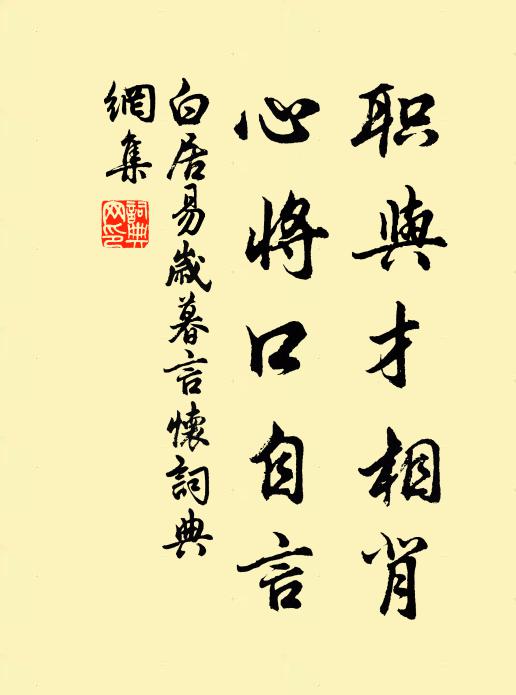 职與才相背
心将口自言
白居易歲暮言懷詞典
網集
詞典
网印